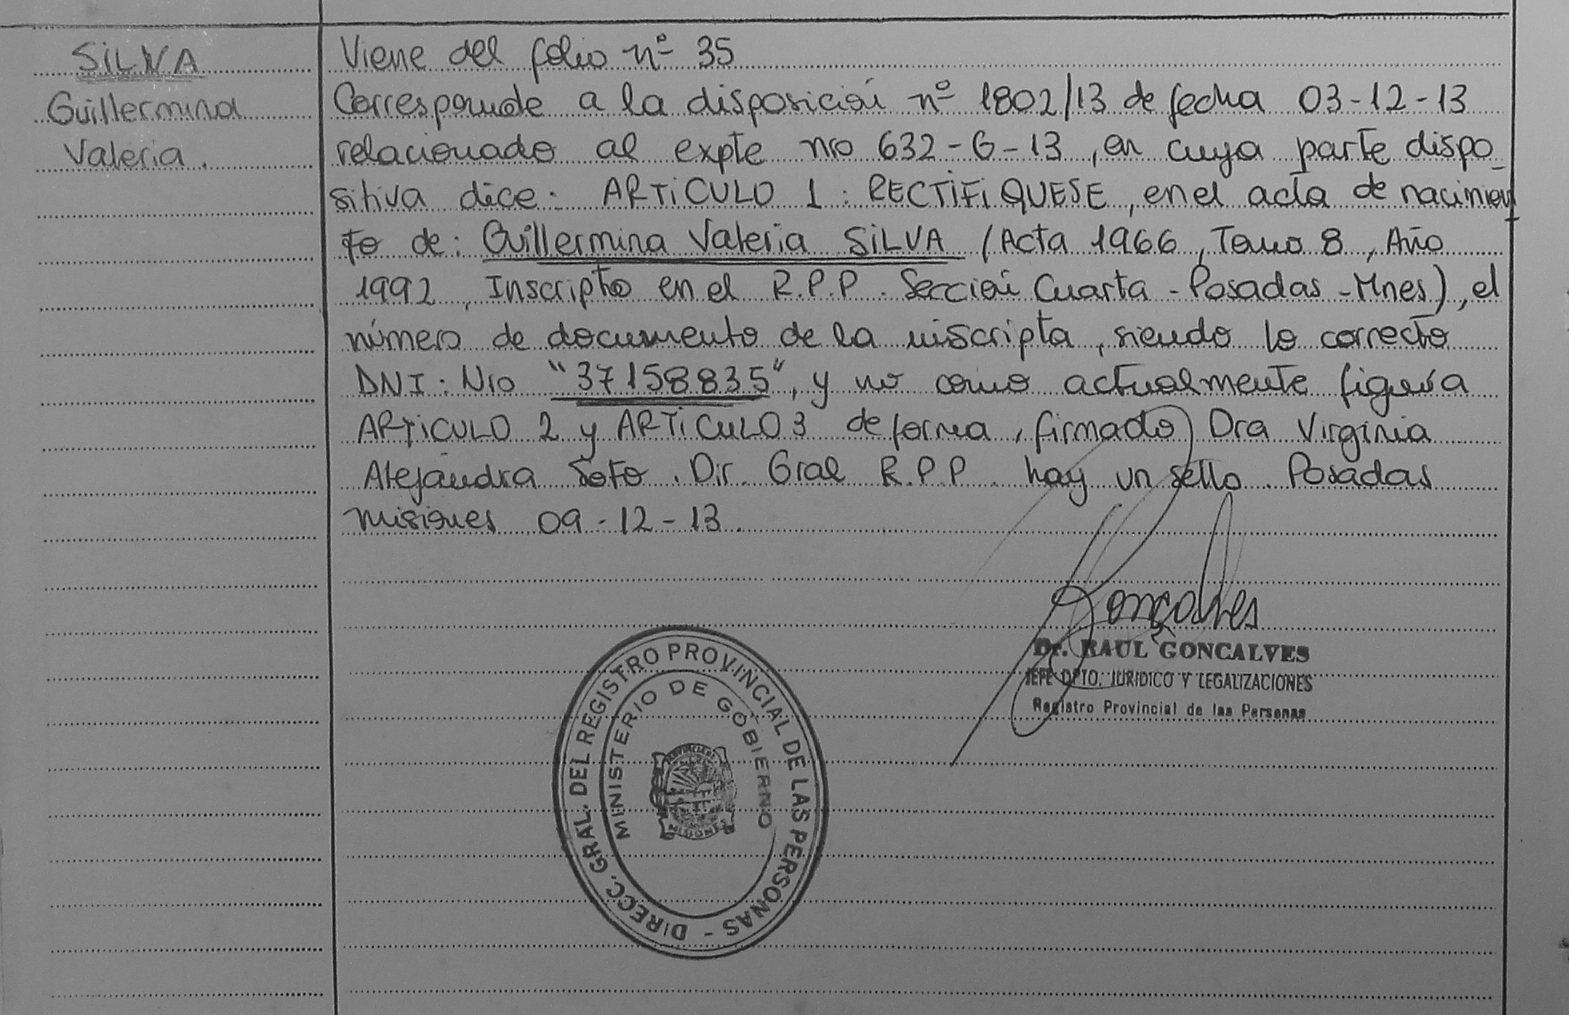 SILVA
Guillermina
Valeria.
Viene del folio nº 35
Corresponde a la disposición nº 1802/13 de fecha 03-12-13
relacionado al expte nro 632-G-13, en cuya parte dispo-
sitiva dice: ARTICULO 1: RECTIFIQUESE, en el acta de nacimien
to de: Guillermina Valeria SILVA (Acta 1966, Tomo 8, Año
1992, Inscripto en el R.P.P. Sección Cuarta - Posadas - Mnes), el
número de documento de la inscripta, siendo lo correcto
DNI: Nro "37158835", y no como actualmente figura
ARTICULO 2 y ARTICULO 3 de forma, firmado) Dra Virginia
Alejandra Soto. Dir. Gral R.P.P. hay un sello. Posadas
misiones 09-12-13.
Goncalves
Dr. RAUL GONCALVES
JEFE DPTO. JURIDICO Y LEGALIZACIONES
Registro Provincial de las Personas
DIRECC. GRAL. DEL REGISTRO PROVINCIAL DE LAS PERSONAS -
MINISTERIO DE GOBIERNO
PROVINCIA DE
MISIONES